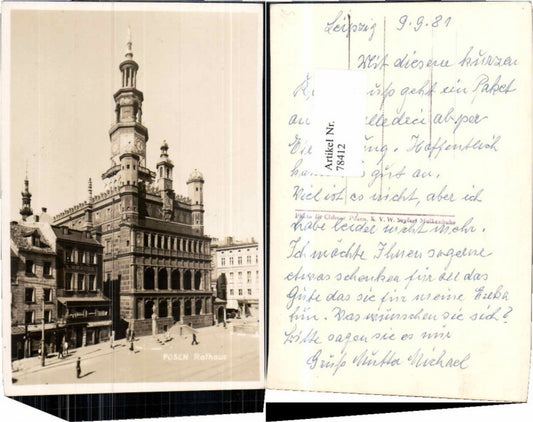 POSEN Rathaus
Leipzig 9.9.81
Mit diesem kurzen
geht ein Paket
an
Hoffentlich
gut an.
Viel ist es nicht, aber ich
habe leider nicht mehr.
Ich möchte Ihnen so gerne
etwas schenken für all das
Gute das sie für meine
tun. Was wünschen sie sich?
Bitte sagen sie es mir
Gruß Mutta Michael
Artikel Nr.
78412